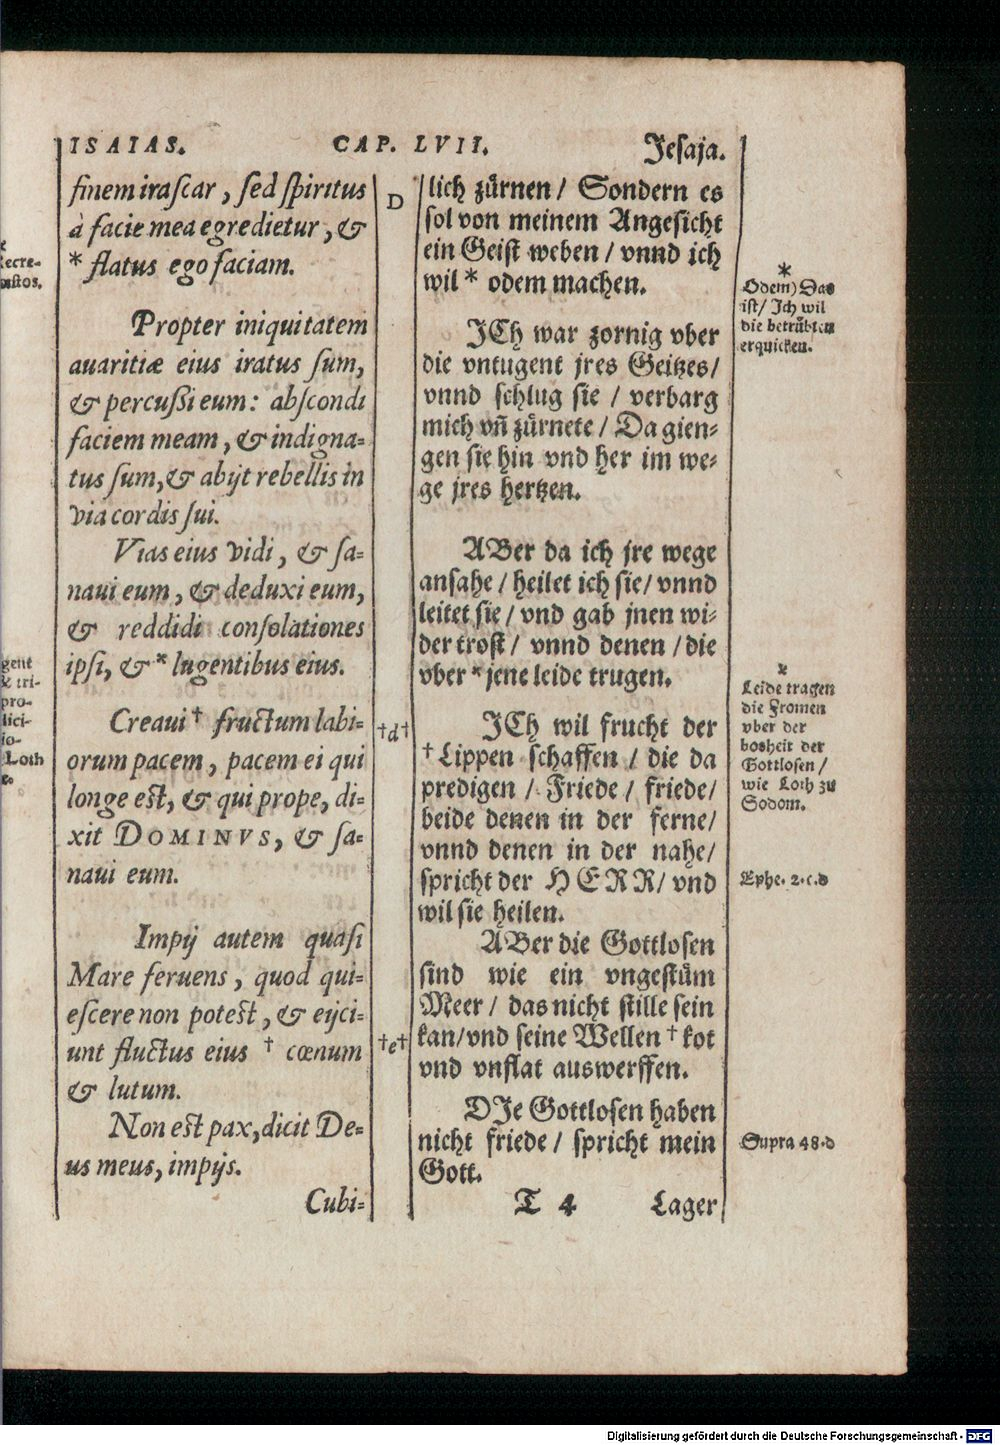 ISAIAS. CAP. LVII. Jesaja.
finem irascar, sed spiritus
à facie mea egredietur, &
* flatus ego faciam.
Propter iniquitatem
auaritiæ eius iratus sum,
& percussi eum: abscondi
faciem meam, & indigna-
tus sum, & abijt rebellis in
via cordis sui.
Vias eius vidi, & sa-
naui eum, & deduxi eum,
& reddidi consolationes
ipsi, & * lugentibus eius.
Creaui † fructum labi-
orum pacem, pacem ei qui
longe est, & qui prope, di-
xit DOMINVS, & sa-
naui eum.
Impij autem quasi
Mare feruens, quod qui-
escere non potest, & eijci-
unt fluctus eius † cœnum
& lutum.
Non est pax, dicit De-
us meus, impijs.
Cubi-
D
†d†
†e†
lich zürnen / Sondern es
sol von meinem Angesicht
ein Geist weben / vnnd ich
wil * odem machen.
JCh war zornig vber
die vntugent jres Geitzes/
vnnd schlug sie / verbarg
mich vñ zürnete / Da gien-
gen sie hin vnd her im we-
ge jres hertzen.
ABer da ich jre wege
ansahe / heilet ich sie / vnnd
leitet sie / vnd gab jnen wi-
der trost / vnnd denen / die
vber * jene leide trugen.
JCh wil frucht der
† Lippen schaffen / die da
predigen / Friede / friede/
beide denen in der ferne/
vnnd denen in der nahe/
spricht der HERR/ vnd
wil sie heilen.
ABer die Gottlosen
sind wie ein vngestüm
Meer / das nicht stille sein
kan/vnd seine Wellen † kot
vnd vnflat auswerffen.
DIe Gottlosen haben
nicht friede / spricht mein
Gott.
T 4 Lager
*
Odem) Das
ist/ Jch wil
die betrübten
erquicken.
*
Leide tragen
die Fromen
vber der
bosheit der
Gottlosen /
wie Loth zu
Sodom.
Ephe. 2.c.d
Supra 48.d
ecre-
gent
& tri-
pro-
lici-
io-
Loth
Digitalisierung gefördert durch die Deutsche Forschungsgemeinschaft - DFG